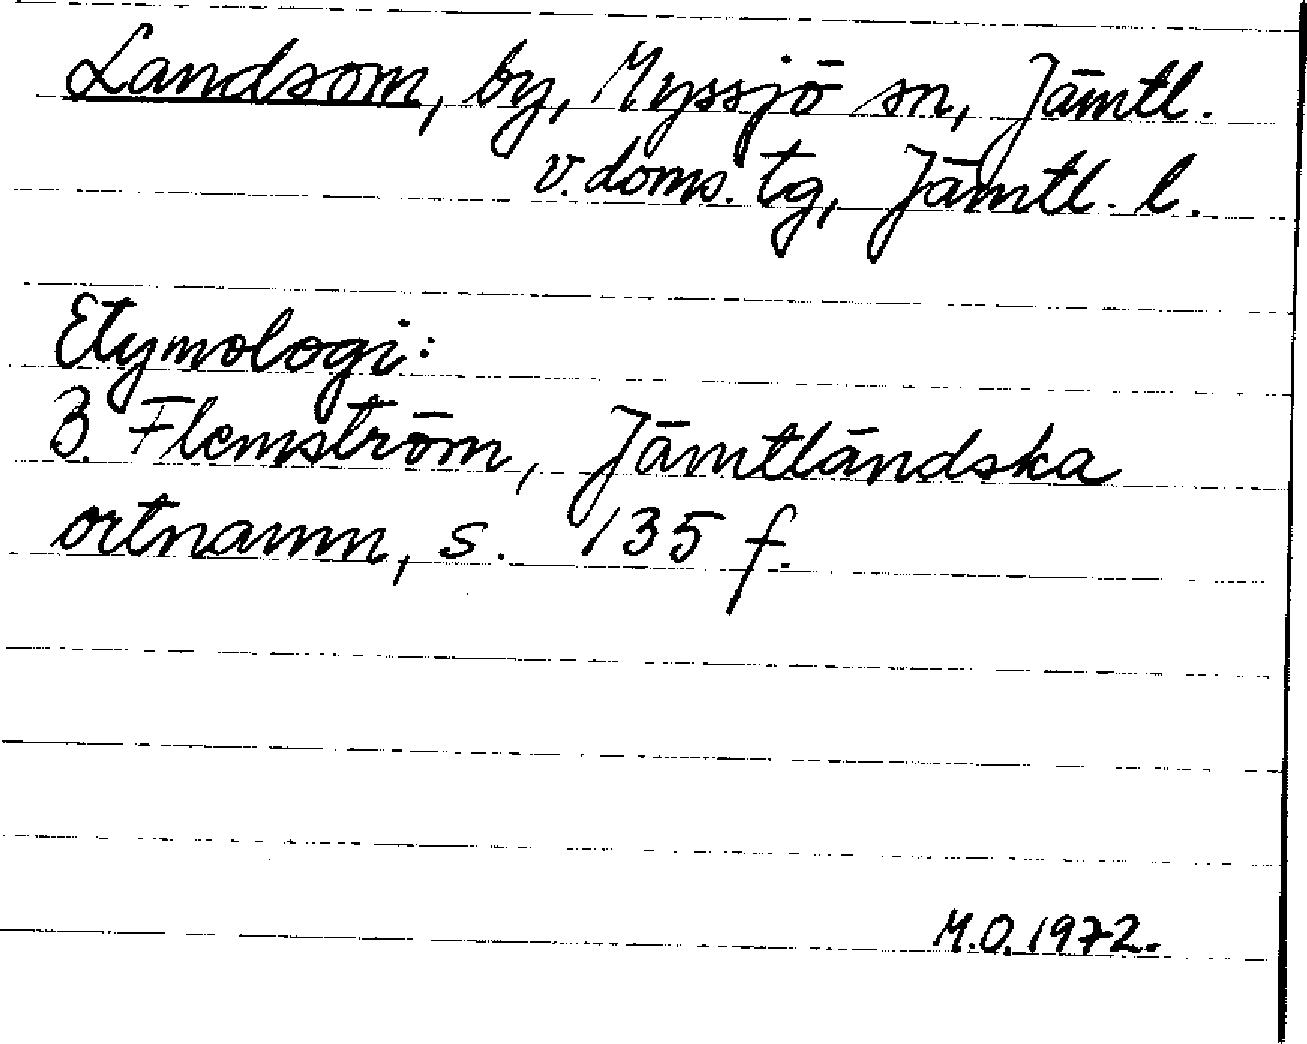 Landsom, by, Myssjö sn, Jämtl.
v. doms. tg, Jämtl. l.
Etymologi:
B. Flemström, Jämtländska
ortnamn, s. 135 f.
M.O. 1972.